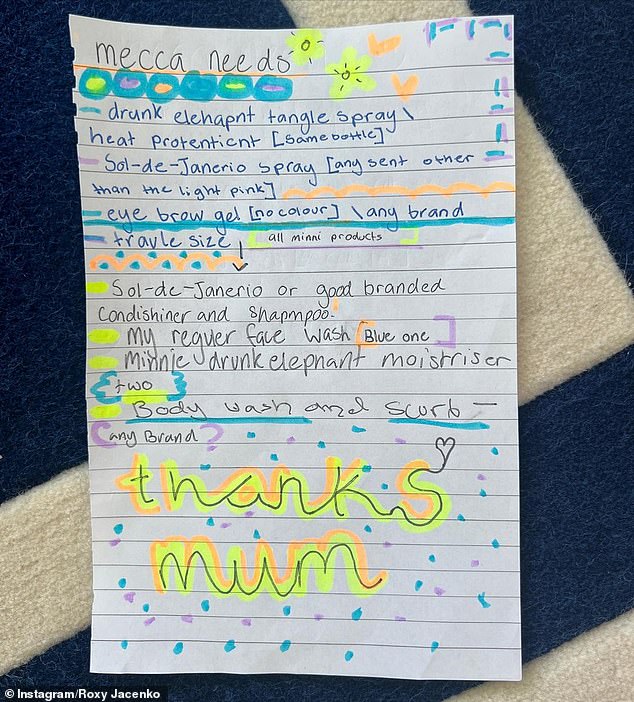 mecca needs
- drunk elehapnt tangle spray \
heat protentient [same bottle]
- Sol-de-Janerio spray [any sent other
than the light pink]
- eye brow gel [no colour] \ any brand
- travle size ↓ [all minni products]
- Sol-de-Janerio or good branded
Condishiner and Shapmpoo.
- My reguer face wash [Blue one]
- Minnie drunk elepnant moistriser
{two}
- Body wash and scurb -
(any Brand)
thanks
mum
Instagram/Roxy Jacenko